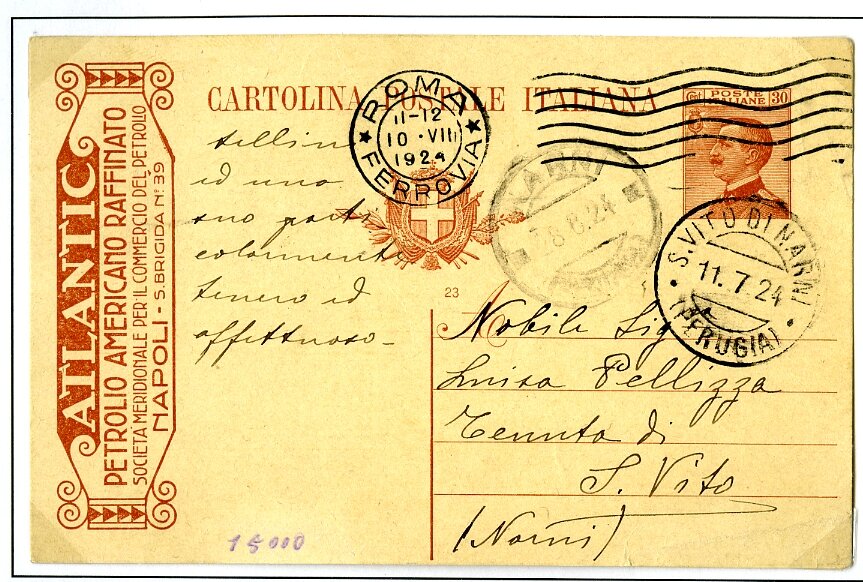 ATLANTIC
PETROLIO AMERICANO RAFFINATO
SOCIETÀ MERIDIONALE PER IL COMMERCIO DEL PETROLIO
NAPOLI - S. BRIGIDA Nº 39
CARTOLINA POSTALE ITALIANA
ROMA
11-12
10 · VII
1924
FERROVIA
POSTE
ITALIANE
30
NARNI
8.24
S. VITO DI NARNI
11. 7. 24
(PERUGIA)
ed uno
parti
colarmente
tenero ed
affettuoso -
23
Nobile Sig
Luisa Pellizza
Tenuta di
S. Vito
(Narni)
15000